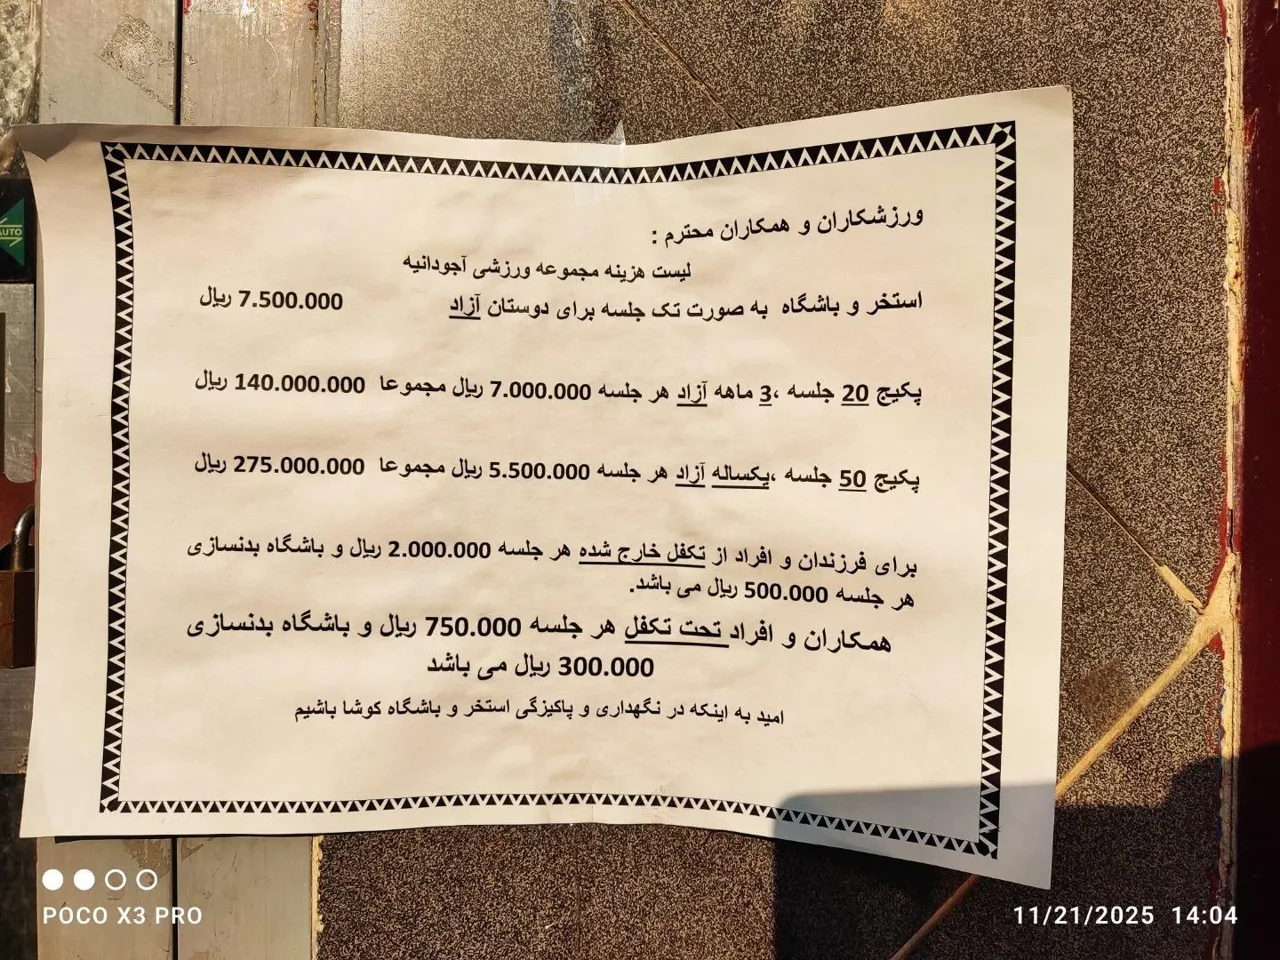 ورزشکاران و همکاران محترم :
لیست هزینه مجموعه ورزشی آجودانیه
استخر و باشگاه به صورت تک جلسه برای دوستان آزاد 7.500.000 ریال
پکیج 20 جلسه ،3 ماهه آزاد هر جلسه 7.000.000 ریال مجموعا 140.000.000 ریال
پکیج 50 جلسه ،یکساله آزاد هر جلسه 5.500.000 ریال مجموعا 275.000.000 ریال
برای فرزندان و افراد از تکفل خارج شده هر جلسه 2.000.000 ریال و باشگاه بدنسازی
هر جلسه 500.000 ریال می باشد.
همکاران و افراد تحت تکفل هر جلسه 750.000 ریال و باشگاه بدنسازی
300.000 ریال می باشد
امید به اینکه در نگهداری و پاکیزگی استخر و باشگاه کوشا باشیم
AUTO
POCO X3 PRO
11/21/2025 14:04